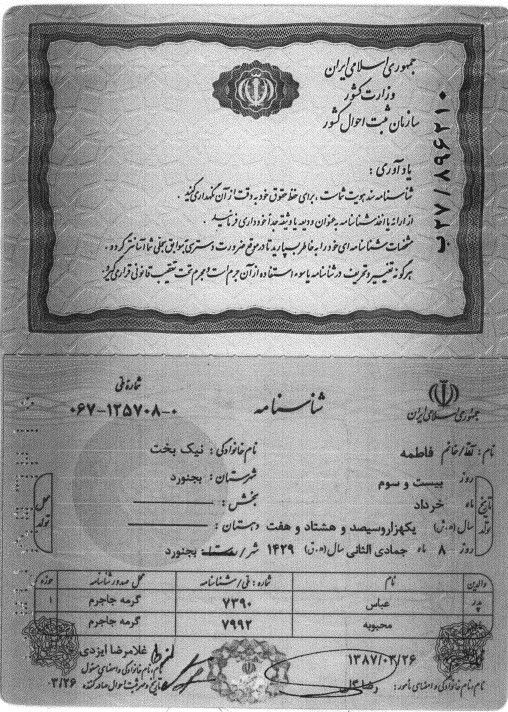 جمهوری اسلامی ایران
وزارت کشور
سازمان ثبت احوال کشور
ب۲۷/۸۹۶۲۱۰
یادآوری :
شناسنامه سند هویت شماست ، برای حفظ حقوق خود به دقت از آن نگهداری کنید .
از ارائه یا اخذ شناسنامه به عنوان ودیعه یا وثیقه جداً خودداری فرمائید .
مشخصات شناسنامه ای خود را به خاطر بسپارید تا در موقع ضرورت دسترسی به سوابق سجلی شما آسانتر گردد .
هر گونه تغییر و تحریف در شناسنامه یا سوء استفاده از آن جرم است و مجرم تحت تعقیب قانونی قرار می گیرد .
جمهوری اسلامی ایران
شناسنامه
شماره ملی
۰۶۷-۱۲۵۷۰۸-۰
نام : آقا/خانم فاطمه نام خانوادگی : نیک بخت
تاریخ تولد
روز بیست و سوم شهرستان : بجنورد
ماه خرداد بخش :
سال (ه.ش) یکهزاروسیصد و هشتاد و هفت دهستان :
روز ۸ ماه جمادی الثانی سال (ه.ق) ۱۴۲۹ شهر/ بجنورد
محل تولد
والدین نام شماره : ملی/شناسنامه محل صدور شناسنامه حوزه
پدر عباس ۷۳۹۰ گرمه جاجرم ۱
محبوبه ۷۹۹۲ گرمه جاجرم
۱۳۸۷/۰۳/۲۶
غلامرضا ایزدی
نام، نام خانوادگی و امضای مسئول
نام، نام خانوادگی و امضای مأمور :
۰۳/۲۶